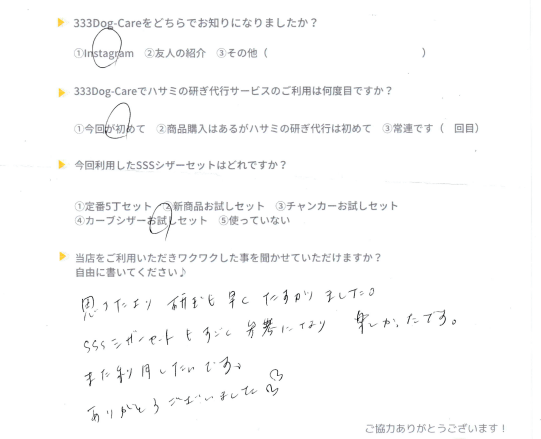 333Dog-Careをどちらでお知りになりましたか？
①Instagram ②友人の紹介 ③その他（ ）
333Dog-Careでハサミの研ぎ代行サービスのご利用は何度目ですか？
①今回が初めて ②商品購入はあるがハサミの研ぎ代行は初めて ③常連です（ 回目）
今回利用したSSSシザーセットはどれですか？
①定番5丁セット ②新商品お試しセット ③チャンカーお試しセット
④カーブシザーお試しセット ⑤使っていない
当店をご利用いただきワクワクした事を聞かせていただけますか？
自由に書いてください♪
思ったより 研ぎも早く たすかりました。
SSSシザーセットもすごく 参考になり 楽しかったです。
また利用したいです。
ありがとうございました
ご協力ありがとうございます！